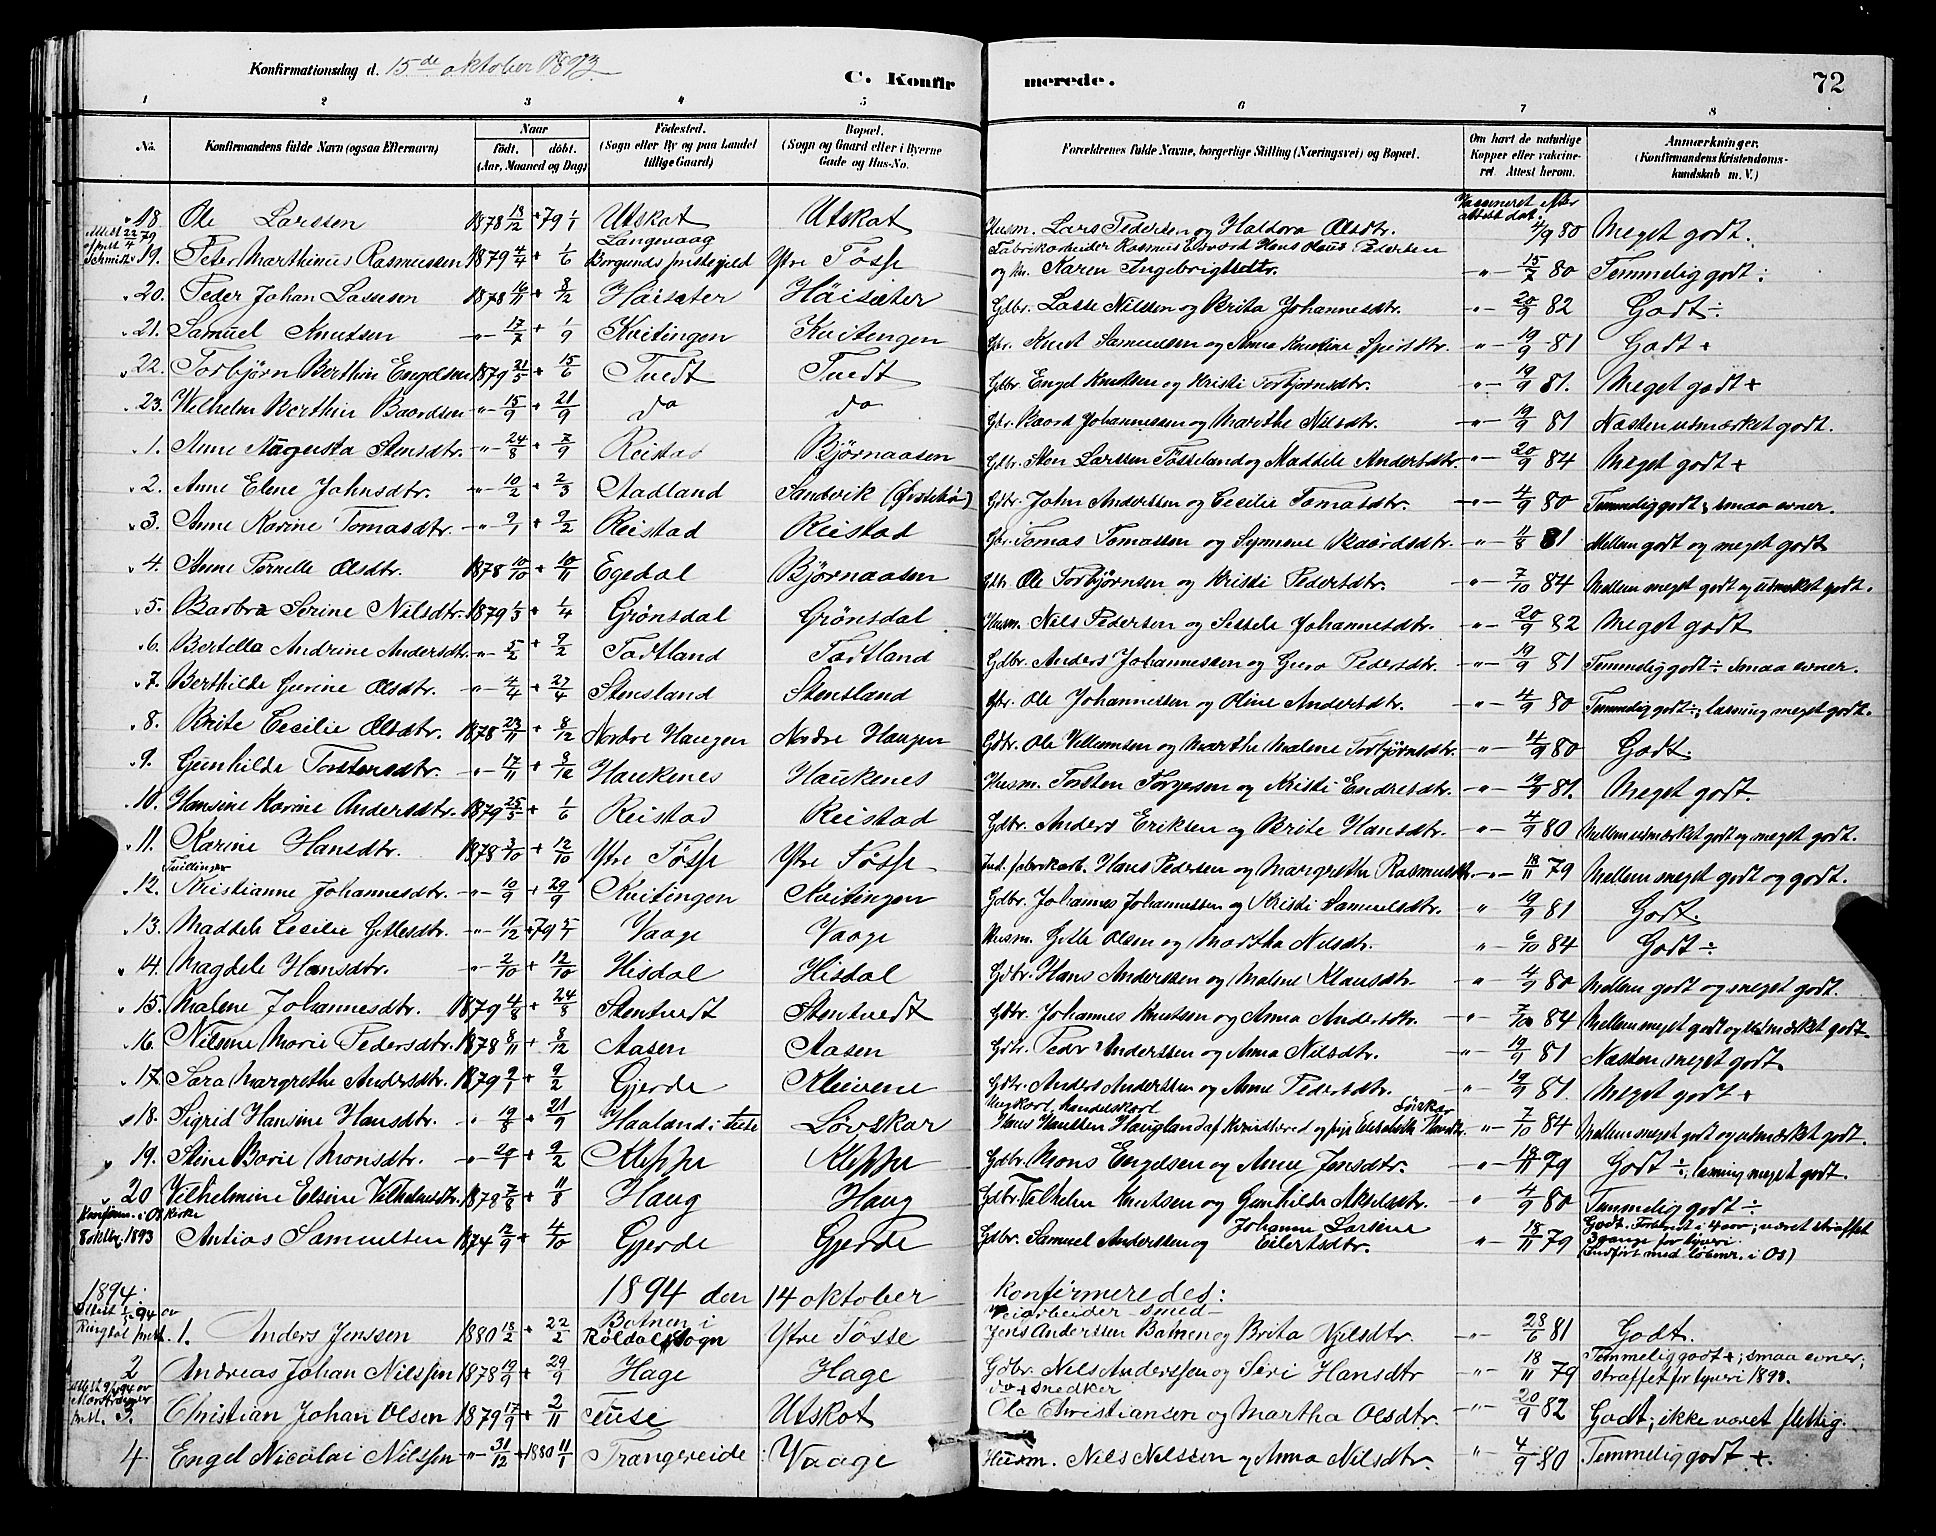 Konfirmationsdag d. 15de oktober 1893
C. Konfirmerede.
72
1 2 3 4 5 6 7 8
No. Konfirmandens fulde Navn (ogsaa Efternavn) Naar født. døbt. (Aar, Maaned og Dag) Fødested. (Sogn eller By og paa Landet tillige Gaard) Bopæl. (Sogn og Gaard eller i Byerne Gade og Hus-No. Forældrenes fulde Navne, borgerlige Stilling (Næringsvei) og Bopæl. Om havt de naturlige Kopper eller vakcineret. Attest herom. Anmærkninger. (Konfirmandens Kristendomskundskab m. V.)
18. Ole Larssen 1878 13/12 + 79 1/1 Utskot Utskot Husm. Lars Pedersen og Haldora Olsdtr. Vaccineret efter attest dat. 4/9 80 Meget godt.
19. Peter Marthinus Rasmussen 1879 4/4 + 1/6 Langevaag Borgunds Ytre Tøsse Fabrikarbeider Rasmus Hans Pedersen og Karen Ingebrigtsdtr. -"- 15/7 80 Temmelig godt ÷
20. Peder Johan Lassesen 1878 16/11 + 8/12 Høisæter Høisæter Gdbr. Lasse Nilssen og Brita Johannesdtr. -"- 20/9 82 Godt ÷
21. Samuel Knutsen -"- 17/7 + 1/9 Kvitingen Kvitengen Gbr. Knut Samuelsen og Anna -"- 19/9 81 Godt +
22. Torbjørn Berthin Engelsen 1879 21/5 + 15/6 Tuedt Tuedt Gdbr. Engel Knutsen og Kristi Torbjørnsdtr. -"- 19/9 81. Meget godt +
23. Wilhelm Berthin Baardsen -"- 15/9 + 21/9 do do Gbr. Baard Johannessen og Marthe Nilsdtr. -"- 19/9 81 Næsten utmærket godt.
1. Anne Augusta Stensdtr. -"- 24/8 + 7/9 Reistad Bjørnaasen Gdbr. Sten Larssen Tøsseland og Maddele Andersdtr. -"- 20/9 84 Meget godt +
2. Anne Elene Johnsdtr. -"- 10/2 + 2/3 Aadland Sandvik Gdbr. John Anderssen og Cecilie Tomasdtr. -"- 4/9 80 Temmelig godt; smaa evner.
3. Anne Karine Tomasdtr. -"- 9/1 + 9/2 Reistad Reistad Gbr. Tomas Tomassen og Synneve Baardsdtr. -"- 11/8 81 Mellem godt og meget godt
4. Anne Pernelle Olsdtr. 1878 10/10 + 10/11 Egedal Bjørnaasen Gdbr. Ole Torbjørnsen og Kristi Pedersdtr. -"- 7/10 84 Mellem meget godt og utmærket godt.
5. Barbra Serine Nilsdtr. 1879 1/3 + 1/4 Grønsdal Grønsdal Husm. Nils Pedersen og Sessele Johannesdtr. -"- 20/9 82 Meget godt
6. Bertella Andrine Andersdtr. -"- 5/2 + 9/2 Tadtland Tadtland Gdbr. Anders Johannessen og Guro Pedersdtr. -"- 19/9 81 Temmelig godt ÷ smaa evner.
7. Berthilde Gurine Olsdtr. -"- 4/4 + 27/4 Stensland Stensland Gbr. Ole Johannessen og Oline Andersdtr. -"- 4/9 80 Temmelig godt ÷; læsning meget godt.
8. Brite Cecilie Olsdtr. 1878 23/11 + 8/12 Nordre Haugen Nordre Haugen Gdbr. Ole Villumsen og Marthe Malene Torbjørnsdtr. -"- 4/9 80 Godt.
9. Gunhilde Torstensdtr. -"- 17/11 + 8/12 Haukenes Haukenes Husm. Torsten Torgersen og Kristi Endresdtr. -"- 19/9 81. Meget godt.
10. Hansine Karine Andersdtr. 1879 25/5 + 1/6 Reistad Reistad Gdbr. Anders Eriksen og Brite Hansdtr. -"- 4/9 80 Mellem utmærket godt og meget godt.
11. Karine Hansdtr. 1878 3/10 + 12/10 Ytre Tøsse Ytre Tøsse Ind. fabrikarb. Hans Pedersen og Margrethe Rasmusdtr. -"- 18/11 79 Mellem meget godt og godt.
Tvillinger
12. Kristianne Johannesdtr. -"- 10/9 + 29/9 Kvitingen Kvitingen Gdbr. Johannes Johannessen og Kristi Samuelsdtr. " 19/9 81 Godt.
13. Maddele Cecilie Gitlesdtr. -"- 11/12 + 79 5/1 Vaage Vaage Husm. Gitle Olsen og Martha Nilsdtr. " 6/10 84 Godt ÷
14. Magdele Hansdtr. -"- 2/10 + 12/10 Hisdal Hisdal Gdbr. Hans Anderssen og Malene Klausdtr. -"- 4/9 80 Mellem godt og meget godt.
15. Malene Johannesdtr. 1879 4/8 + 24/8 Stentvedt Stentvedt Gdbr. Johannes Knutsen og Anna Andersdtr. -"- 7/10 84 Mellem meget godt og utmærket godt.
16. Nilsine Marie Pedersdtr. 1878 8/11 + 8/12 Aasen Aasen Gdbr. Peder Anderssen og Anna Nilsdtr. -"- 19/9 81 Næsten meget godt
17. Sara Margrethe Andersdtr. 1879 9/1 + 9/2 Gjerde Kleivene Gdbr. Anders Anderssen og Anne Pedersdtr. " 19/9 81 Meget godt +
18. Sigrid Hansine Hansdtr. " 19/8 + 21/9 Haaland i Løvskar Ungkarl, handelskarl Hans Haugland af Kvindherred og pige Hansdtr. Løvskar " 7/10 84 Mellem meget godt og utmærket godt.
19. Stine Borie Monsdtr. -"- 20/1 + 9/2 Kleppe Kleppe Gdbr. Mons Engelsen og Anne Jensdtr. " 18/11 79 Godt ÷, læsning meget godt.
20 Vilhelmine Elsine Vilhelmsdtr. 1878 7/8 + 11/8 Haug Haug Gdbr. Vilhelm Knutsen og Gunhilde Akselsdtr. " 4/9 80 Temmelig godt ÷
Konfirm. i Os Kirke 8 oktbr. 1893 Antias Samuelsen 1874 12/9 + 4/10 Gjerde Gjerde Gdbr. Samuel Anderssen og Johanna Larsine Eilertsdtr. " 18/11 79 Godt. Forsømt i 4 aar; været straffet 3 gange for tyveri. (Indført med løbenr. i Os)
1894. 1894 den 14 oktober konfirmeredes:
1. Anders Jenssen 1880 18/2 + 22/2 Botnen i Røldal Sogn Ytre Tøsse Veiarbeider smed Jens Anderssen Botnen og Brita Njelsdtr. -"- 28/6 81 Godt.
2 Andreas Johan Nilssen 1878 19/9 + 29/9 Hage Hage Gdbr. Nils Anderssen og Siri Hansdtr " 18/11 79 Temmelig godt +; smaa evner; straffet for tyveri 1893.
3. Christian Johan Olsen 1879 17/9 + 2/11 Tuse Utskot do + snedker Ole Christiansen og Martha Olsdtr. -"- 20/9 82 Godt; ikke været flittig.
4 Engel Nicolai Nilssen -"- 31/12 + 1880 11/1 Trangereide Vaage Husm. Nils Nilssen og Anna Nilsdtr. " 4/9 80 Temmelig godt +.